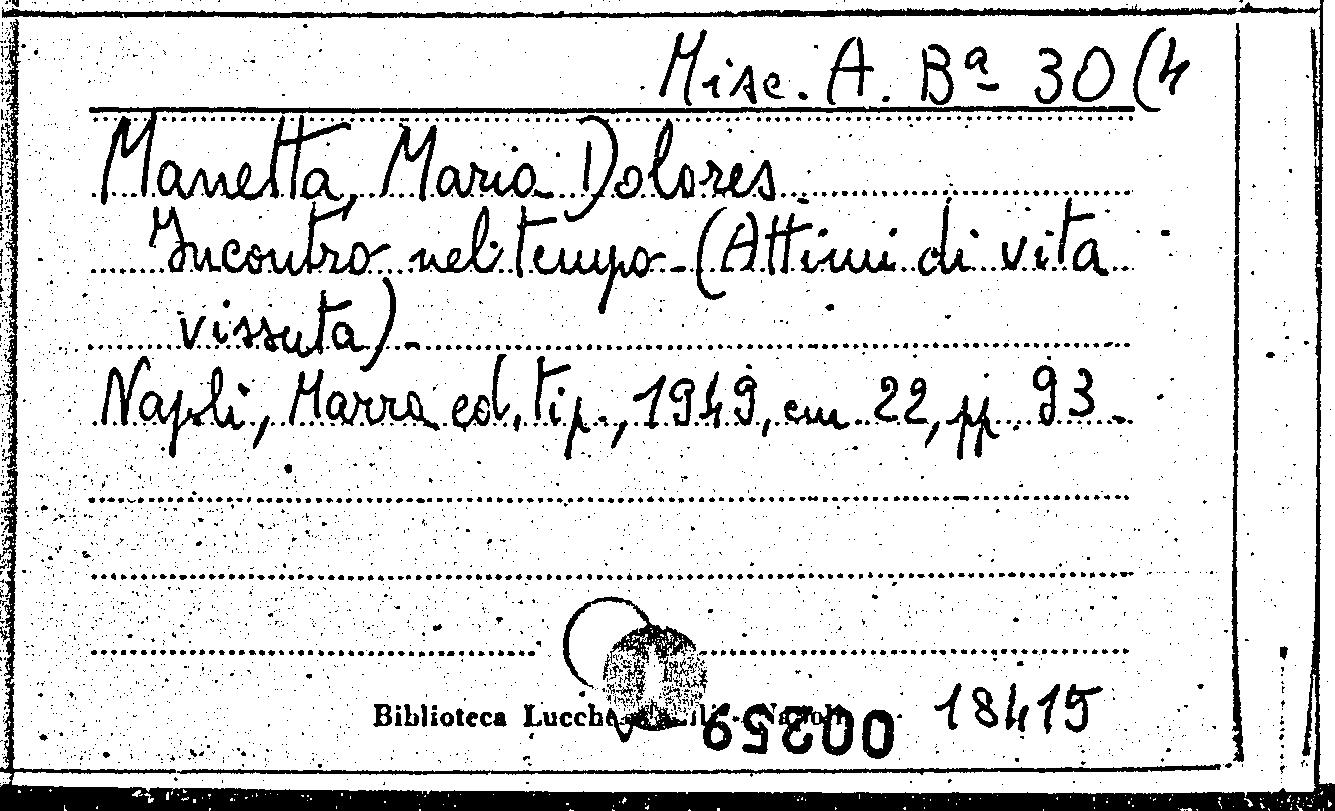 Misc. A. Bª 30 (4
Manetta, Maria Dolores
Incontro nel tempo - (Attimi di vita
vissuta) -
Napoli, Marra ed. tip., 1949, cm 22, pp. 93 -
Biblioteca Napoli
18415